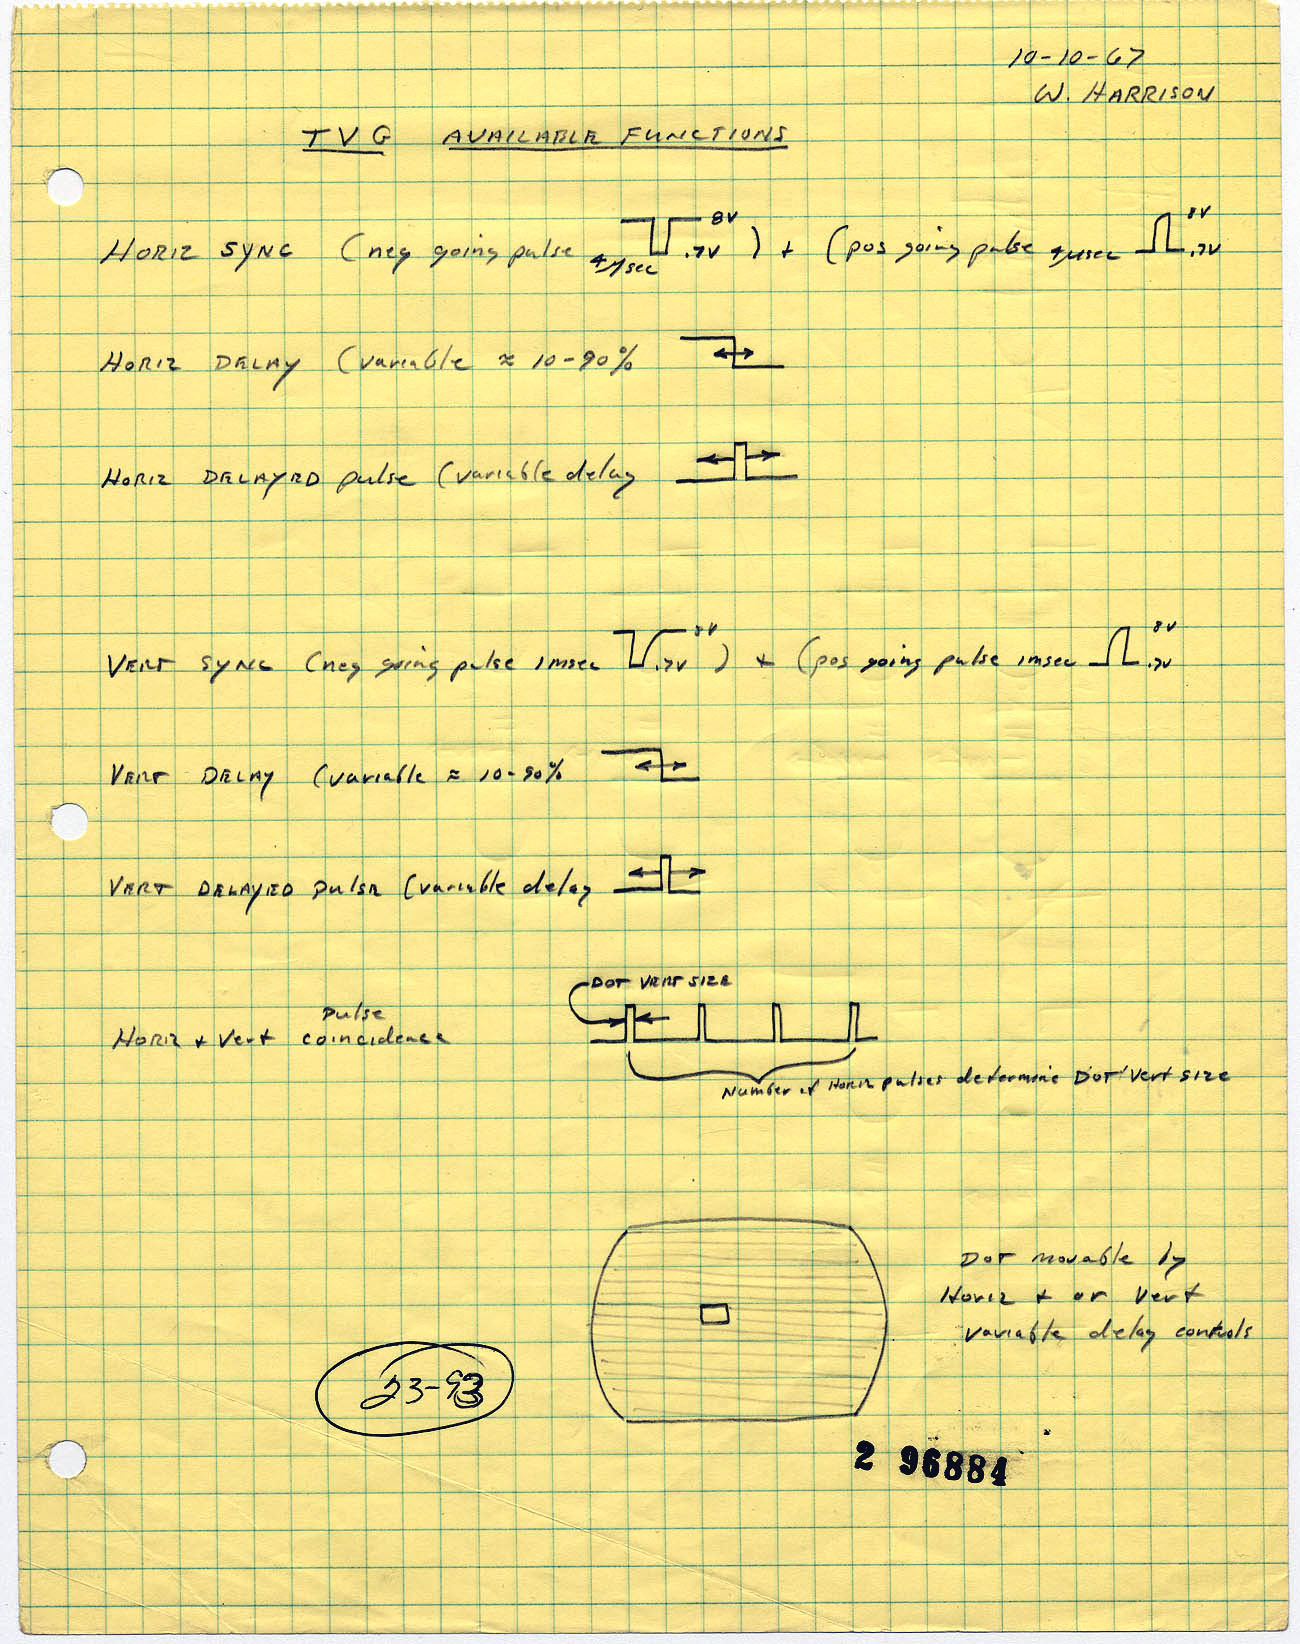 10-10-67
W. HARRISON
TVG AVAILABLE FUNCTIONS
HORIZ SYNC (neg going pulse 4μsec 8V .7V) + (pos going pulse 4μsec 8V .7V
HORIZ DELAY (variable ≈ 10-90%
HORIZ DELAYED pulse (variable delay
VERT SYNC (neg going pulse 1msec 8V .7V) + (pos going pulse 1msec 8V .7V
VERT DELAY (variable ≈ 10-90%
VERT DELAYED pulse (variable delay
DOT VERT SIZE
Horiz + Vert pulse coincidence
Number of Horiz pulses determine DOT Vert SIZE
Dot movable by
Horiz + or Vert
variable delay controls
23-93
2 96884